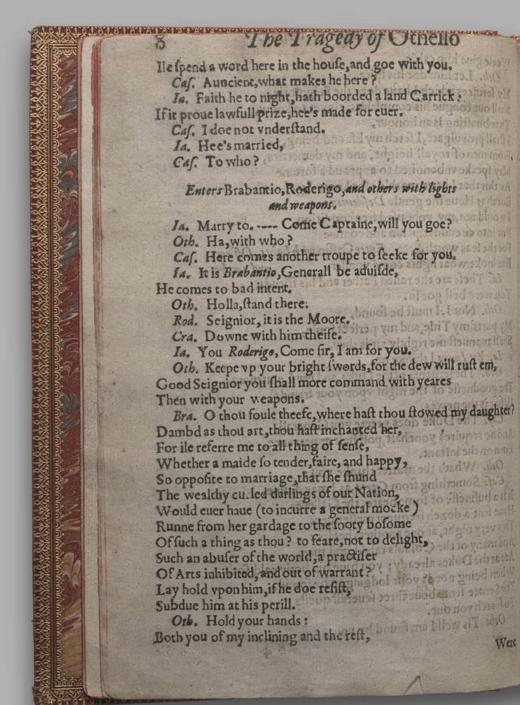 8 The Tragedy of Othello
Ile spend a word here in the house, and goe with you.
Cas. Auncient, what makes he here?
Ia. Faith he to night, hath boorded a land Carrick:
If it proue lawfull prize, hee's made for euer.
Cas. I doe not vnderstand.
Ia. Hee's married,
Cas. To who?
Enters Brabantio, Roderigo, and others with lights
and weapons.
Ia. Marry to. ---- Come Captaine, will you goe?
Oth. Ha, with who?
Cas. Here comes another troupe to seeke for you.
Ia. It is Brabantio, Generall be aduisde,
He comes to bad intent.
Oth. Holla, stand there.
Rod. Seignior, it is the Moore.
Cra. Downe with him theife.
Ia. You Roderigo, Come sir, I am for you.
Oth. Keepe vp your bright swords, for the dew will rust em,
Good Seignior you shall more command with yeares
Then with your weapons.
Bra. O thou foule theefe, where hast thou stowed my daughter?
Dambd as thou art, thou hast inchanted her,
For ile referre me to all thing of sense,
Whether a maide so tender, faire, and happy,
So opposite to marriage, that she shund
The wealthy cu.led darlings of our Nation,
Would euer haue (to incurre a general mocke)
Runne from her gardage to the sooty bosome
Of such a thing as thou? to feare, not to delight,
Such an abuser of the world, a practiser
Of Arts inhibited, and out of warrant?
Lay hold vpon him, if he doe resist,
Subdue him at his perill.
Oth. Hold your hands:
Both you of my inclining and the rest,
Were